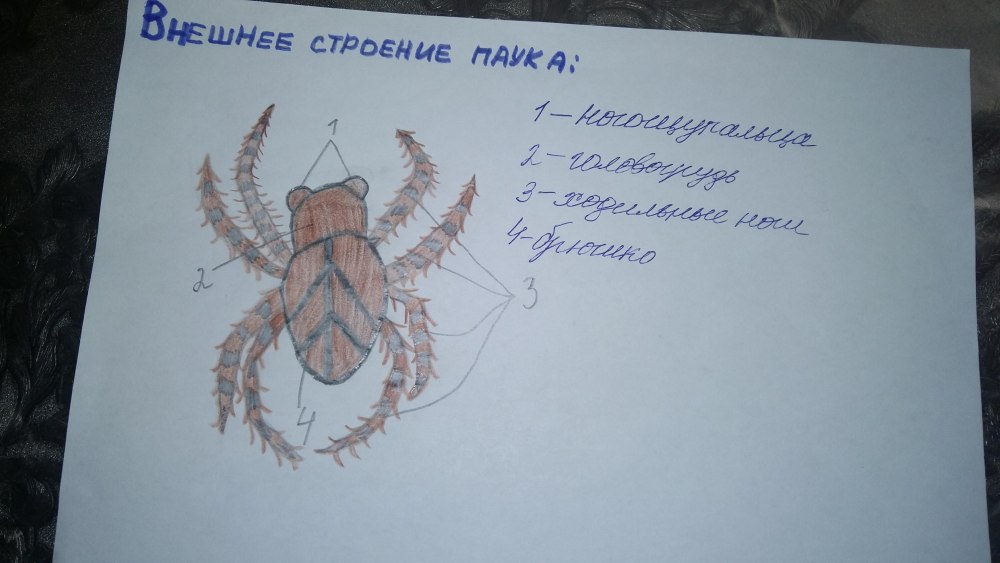 Внешнее строение паука:
1
1 – ногощупальца
2 – головогрудь
3 – ходильные ноги
4 – брюшко
2
3
4